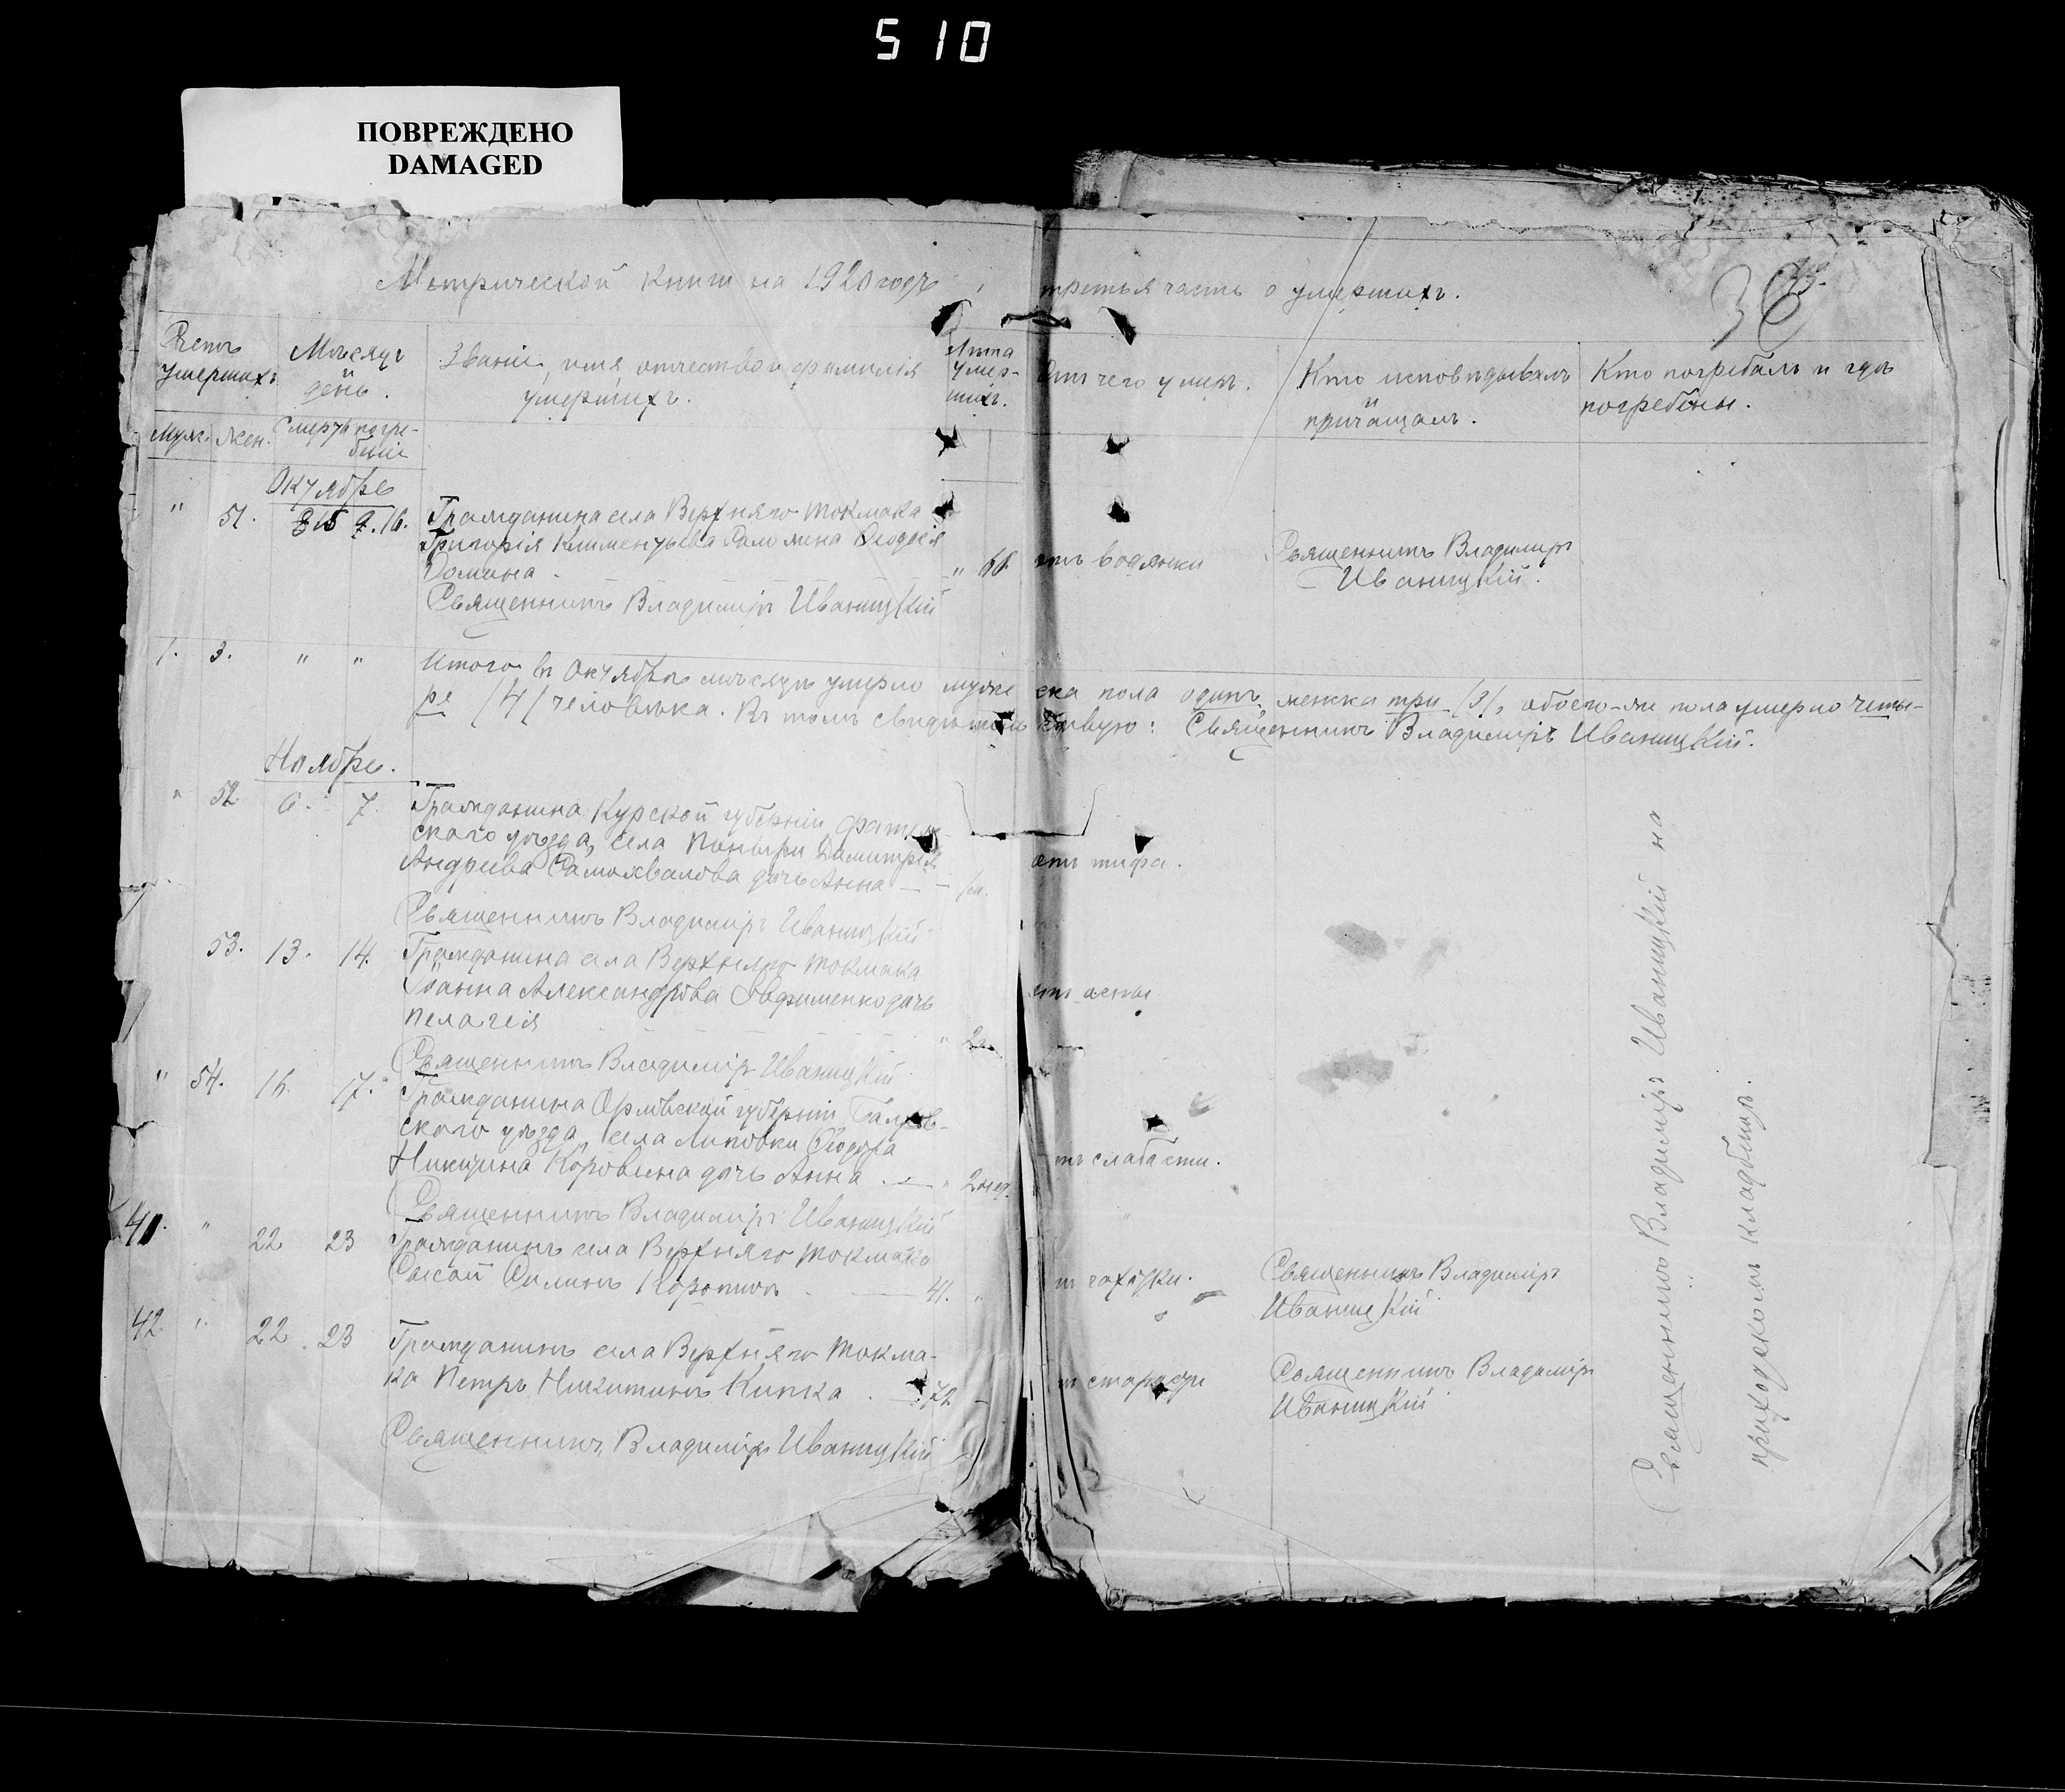 510
ПОВРЕЖДЕНО
DAMAGED
Метрической книги на 1920 годъ, третья часть о умершихъ.
Счетъ умершихъ
Мѣсяцъ и день.
Званіе, имя, отчество и фамилія умершихъ.
Лѣта умер-
шихъ.
Отъ чего умеръ.
Кто исповѣдывалъ и причащалъ.
Кто погребалъ и гдѣ погребены.
Муж. Жен. Смерть погре-
беніе
Октябрь
" 51. 15 16. Гражданина села Верхняго Токмака
Григорія Климентьева жена Ѳеодосія
Домина. " 68. отъ водянки Священникъ Владиміръ
Иваницкій.
Священникъ Владиміръ Иваницкій
1. 3. " " Итого въ Октябрѣ мѣсяцѣ умерло муже ска пола одинъ, женска три /3/, обоего-же пола умерло четы-
ре /4/ человѣка. Въ томъ свидѣтельствую: Священникъ Владиміръ Иваницкій.
Ноябрь.
" 52 6. 7. Гражданина Курской губерніи Фатеж-
ского уѣзда, села Поныри Димитрія
Андреева Самохвалова дочь Анна отъ тифа.
Священникъ Владиміръ Иваницкій
53. 13. 14. Гражданина села Верхняго Токмака
Іоанна Александрова Евфименко дочь
Пелагія " 2 отъ оспы
Священникъ Владиміръ Иваницкій
" 54. 16. 17. Гражданина Орловской губерніи,
ского уѣзда, села Липовки Ѳеодора
Никитина Коровина дочь Анна " 2 нед. отъ слабости.
Священникъ Владиміръ Иваницкій
41. " 22 23 Гражданинъ села Верхняго Токмака
41. " отъ чахотки. Священникъ Владиміръ
Иваницкій
42. " 22. 23 Гражданинъ села Верхняго Токма-
ка Петръ Никитинъ Кипка 72 Священникъ Владиміръ
Иваницкій
Священникъ Владиміръ Иваницкій
Священникъ Владиміръ Иваницкій на
приходскомъ кладбищѣ.